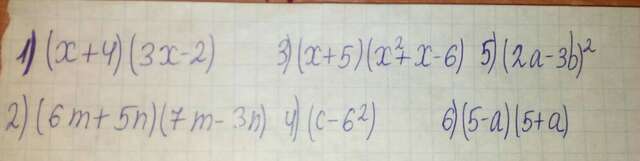 1) (x+4)(3x-2) 3) (x+5)(x²+x-6) 5) (2a-3b)²
2) (6m+5n)(7m-3n) 4) (c-6²) 6) (5-a)(5+a)